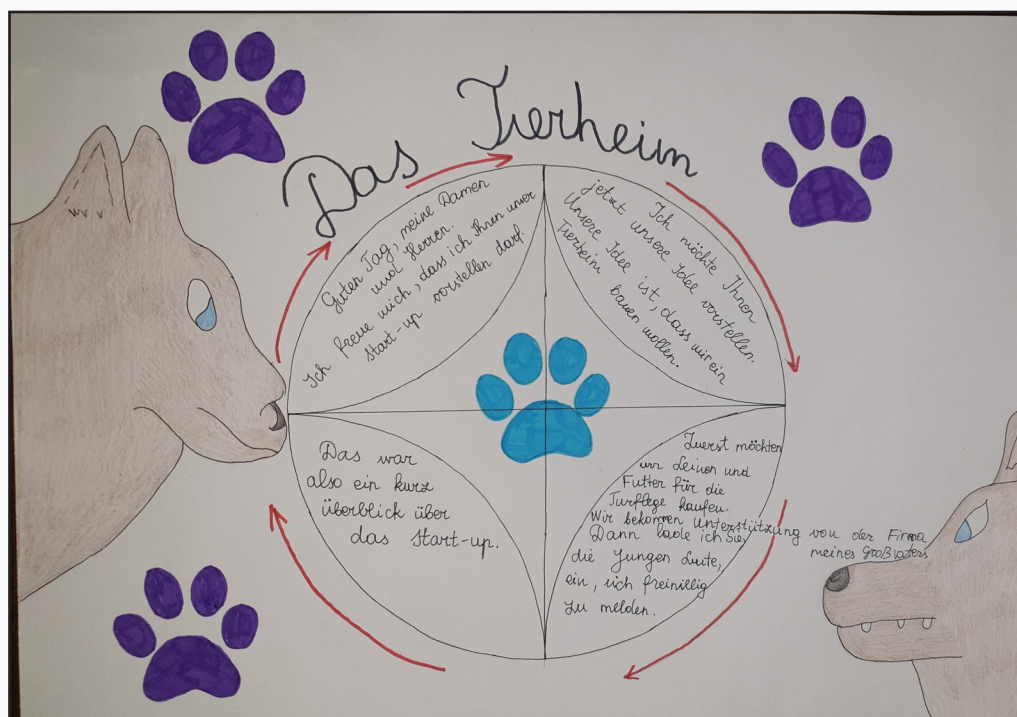 Das Tierheim
Guten Tag, meine Damen
und Herren.
Ich freue mich, dass ich Ihnen unser
Start-up vorstellen darf.
Ich möchte Ihnen
jetzt unsere Idee vorstellen.
Unsere Idee ist, dass wir ein
Tierheim bauen wollen.
Zuerst möchten
wir Leinen und
Futter für die
Turflege kaufen.
Wir bekommen Unterstützung von der Firma
meines Großvaters
Dann lade ich Sie,
die Jungen Leute,
ein, sich freiwillig
zu melden.
Das war
also ein kurz
überblick über
das Start-up.